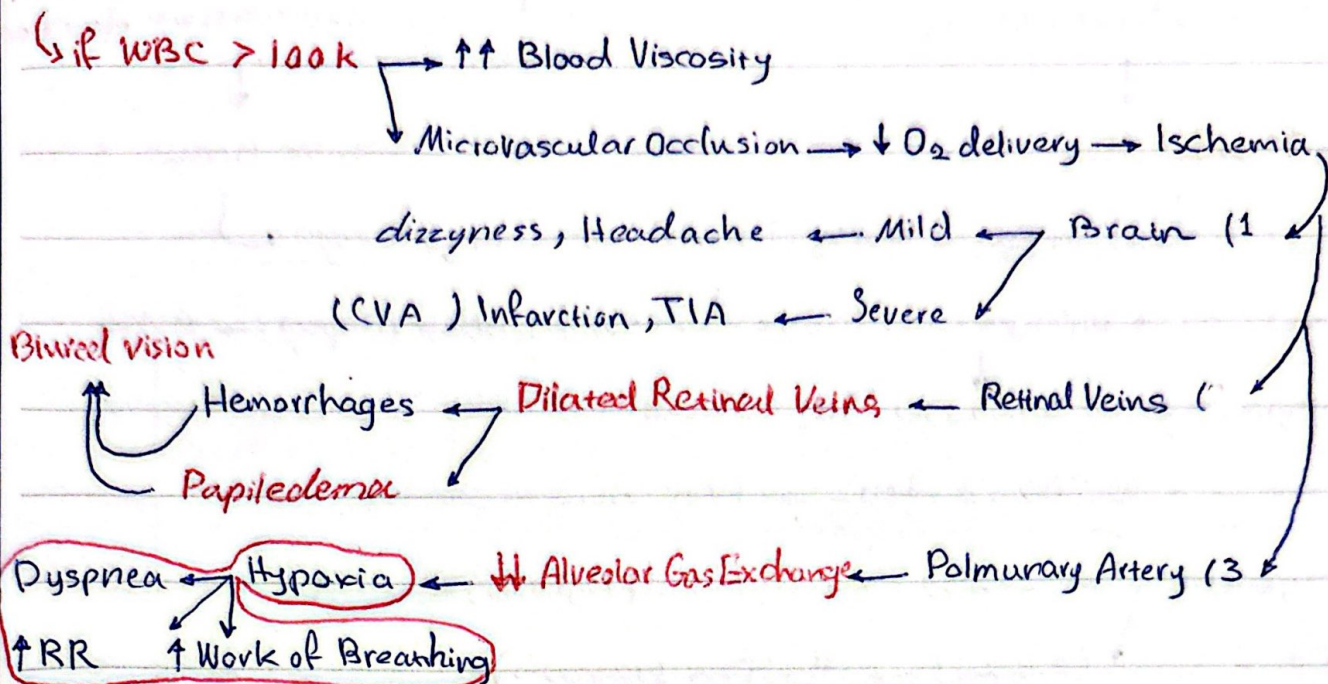 ↳ if WBC > 100k → ↑↑ Blood Viscosity
Microvascular Occlusion → ↓ O₂ delivery → Ischemia
dizzyness, Headache ← Mild ← Brain (1
(CVA) Infarction, TIA ← Severe
Blurred vision
Hemorrhages ← Dilated Retinal Veins ← Retinal Veins (
Papiledema
Dyspnea ← Hypoxia ← ↓↓ Alveolar Gas Exchange ← Polmunary Artery (3
↑RR ↑ Work of Breathing